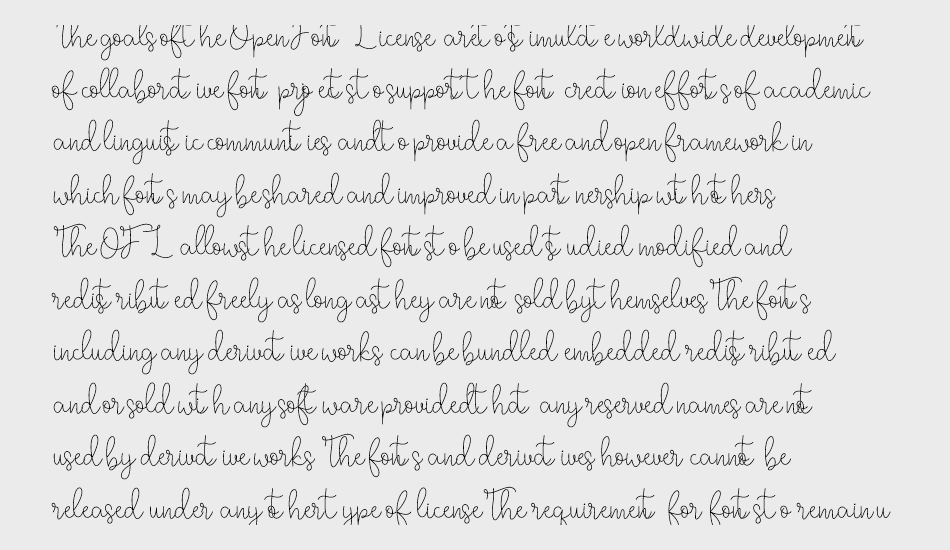 The goals of the Open Font License are to stimulate worldwide development
of collaborative font projects to support the font creation efforts of academic
and linguistic communities and to provide a free and open framework in
which fonts may be shared and improved in partnership with others
The OFL allows the licensed fonts to be used studied modified and
redistributed freely as long as they are not sold by themselves The fonts
including any derivative works can be bundled embedded redistributed
and or sold with any software provided that any reserved names are not
used by derivative works The fonts and derivatives however cannot be
released under any other type of license The requirement for fonts to remain u